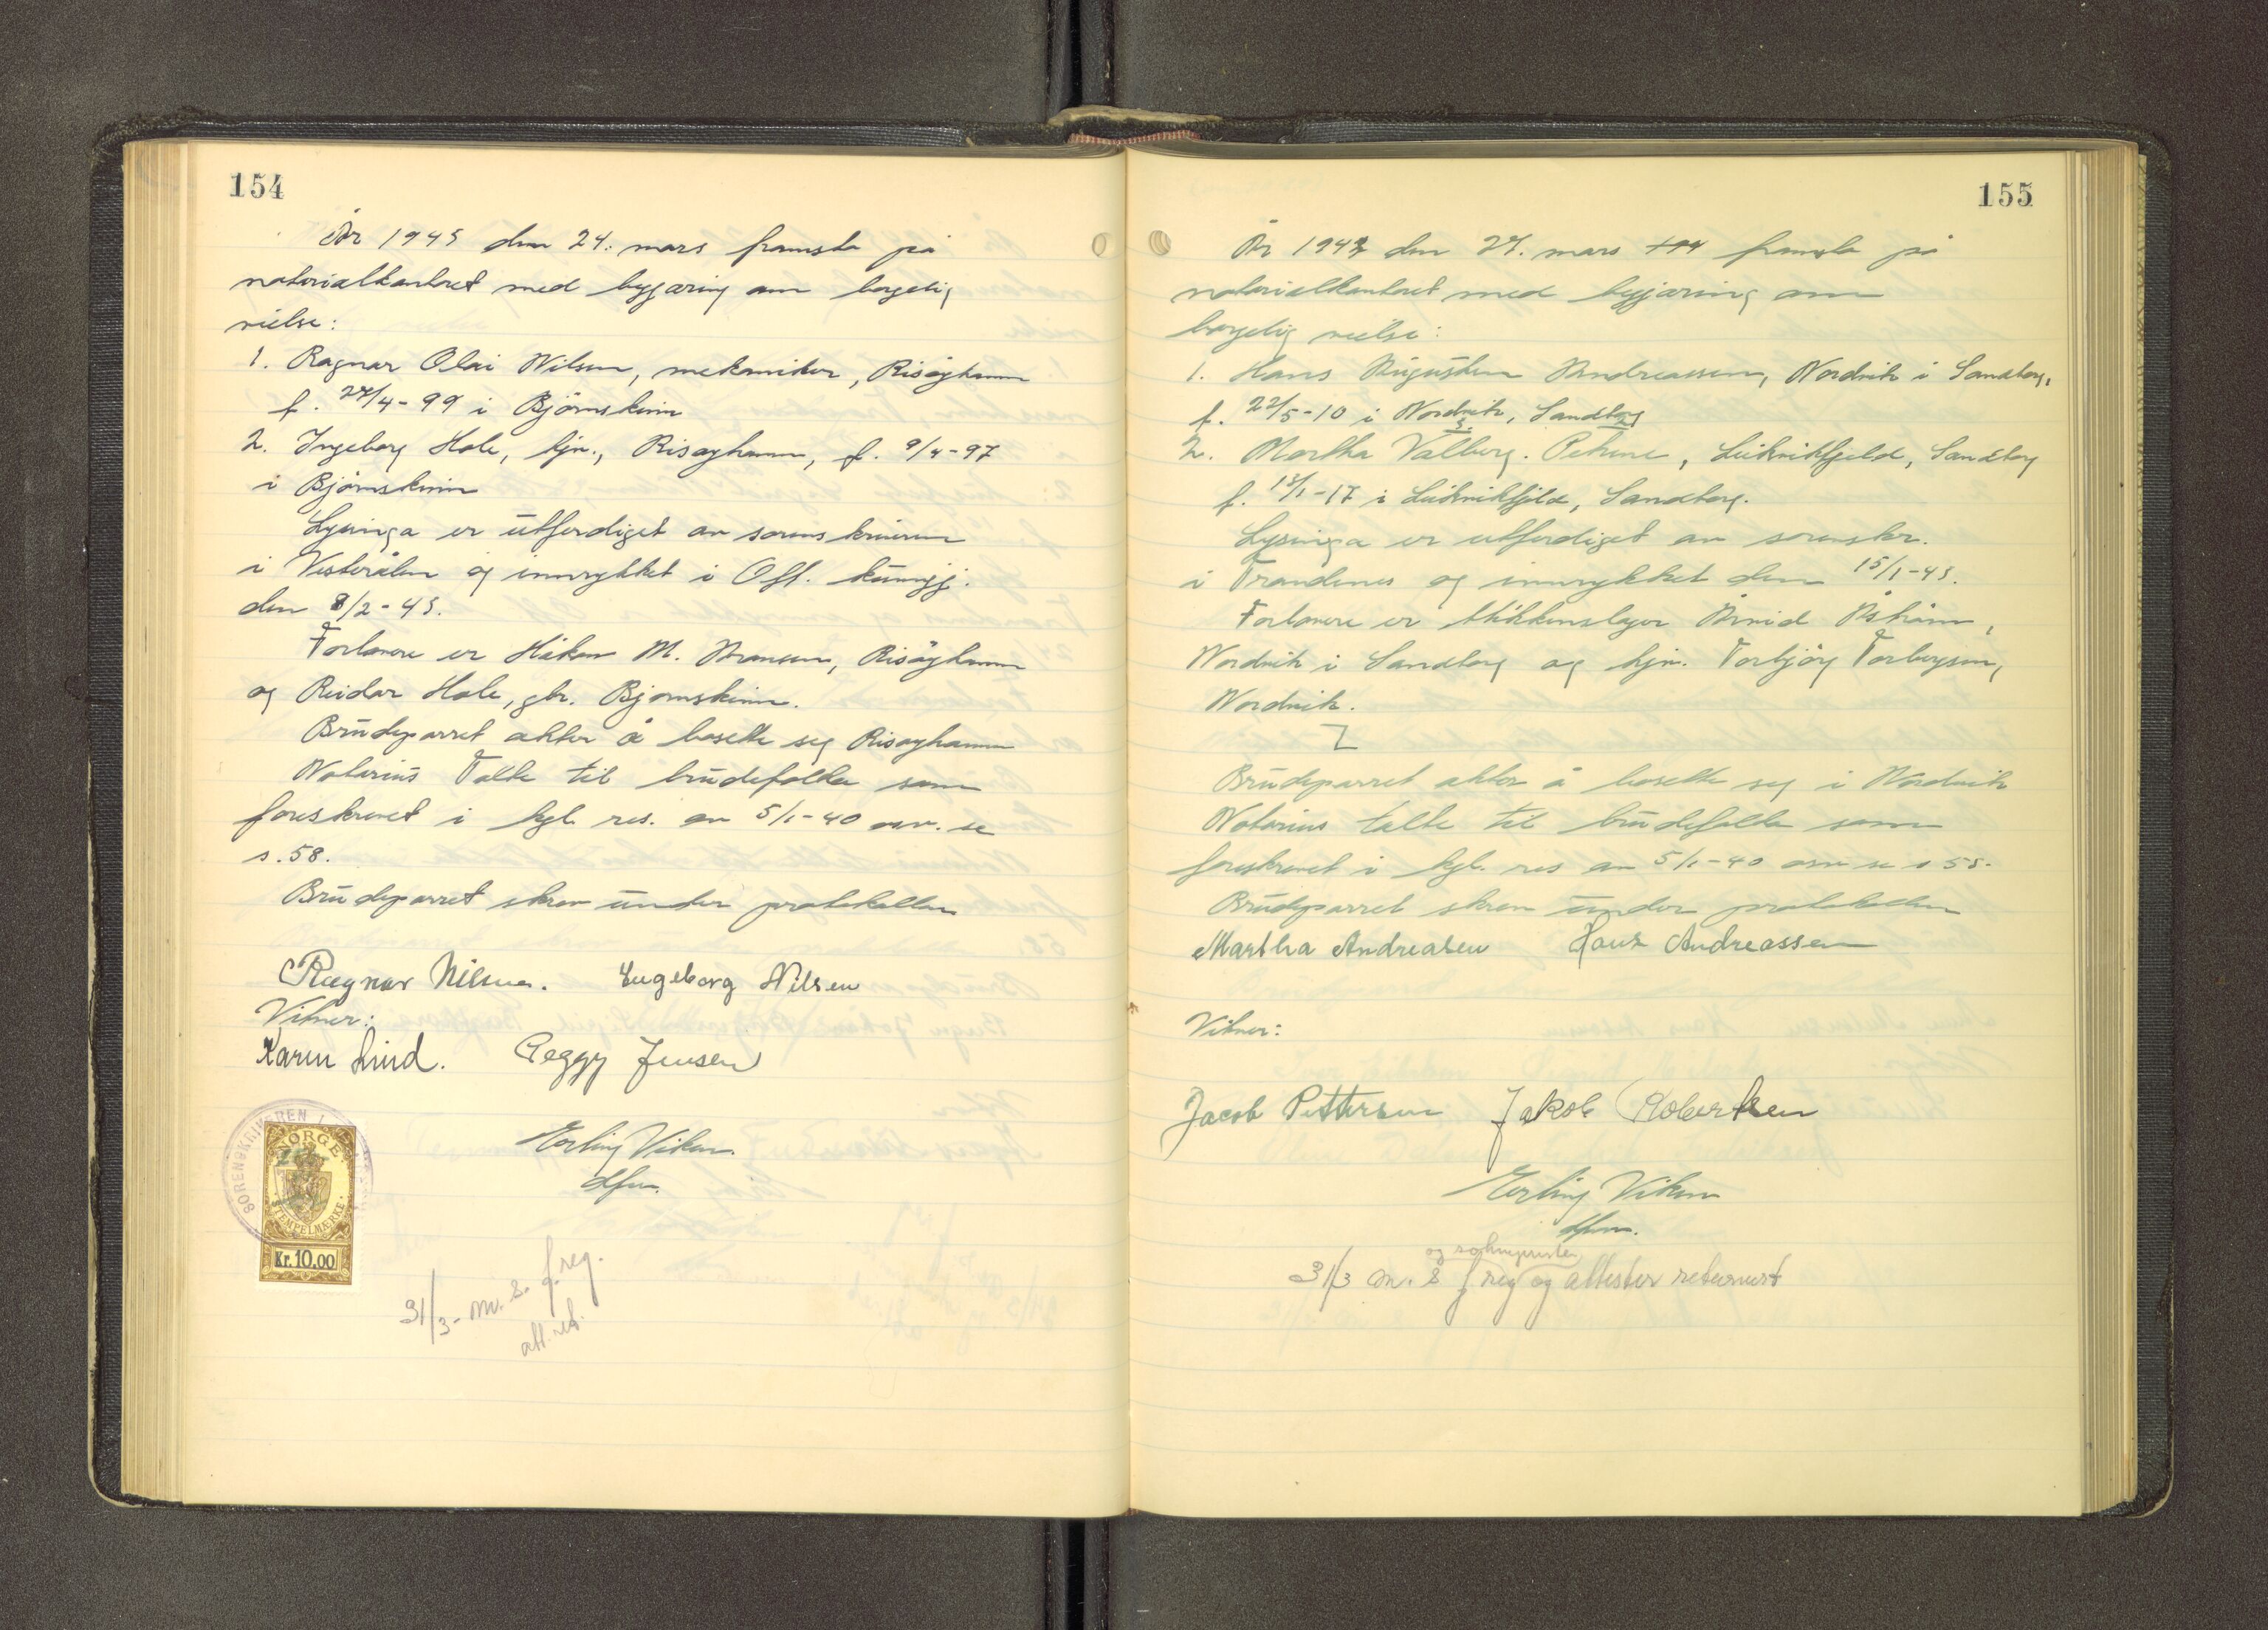 154
År 1945 den 24. mars framsto på
notarialkontoret med bygjæring om borgelig
vielse:
1. Ragnar Olai Nilsen, mekaniker, Risøyhamn
f. 27/4-99 i Bjørnskinn
2. Ingeborg Hole, hjv., Risøyhamn, f. 9/4-97
i Bjørnskinn
Lysinga er utferdiget av sorenskriveren
i Vesterålen og innrykket i Off. kunngj.
den 8/2-45.
Forlovere er Håkon M. Risøyhamn
og Reidar Hole, gbr. Bjørnskinn.
Brudeparret akter å bosette seg Risøyhamn
Notarius Talte til brudefolka som
foreskrevet i kgl. res. av 5/1-40 osv. se
s. 58.
Brudeparret skrev under protokollen
Ragnar Nilsen. Ingeborg Nilsen
Vitner:
Karen Lind. Peggy Jensen
Erling Viken
dfm.
SORENSKRIVEREN I
NORGE
STEMPELMÆRKE
Kr. 10.00
31/3- m. s. f. reg.
att. ret.
155
År 1943 den 27. mars framsto på
notarialkontoret med bygjæring om
borgelig vielse:
1. Hans Augusten Andreassen, Nordvik i Sandtorg,
f. 22/5-10 i Nordvik, Sandtorg
2. Martha Valberg. Petrine, Sandtorg
f. 13/1-17 i Sandtorg.
Lysinga er utferdiget av sorenskr.
i Trondenes og innrykket den 15/1-43.
Forlovere er blikkenslager Arvid Åstrøm,
Nordvik i Sandtorg og hjv. Torbjørg Torbergsen,
Nordvik.
Brudeparret akter å bosette seg i Nordvik
Notarius talte til brudefolka som
foreskrevet i kgl. res av 5/1-40 osv se s 58.
Brudeparret skrev under protokollen
Martha Andreasen Hans Andreassen
Vitner:
Jacob Pettersen Jakob Robertsen
Erling Viken
dfm.
og sokneprsten
31/3 m. s f reg og attester returnert